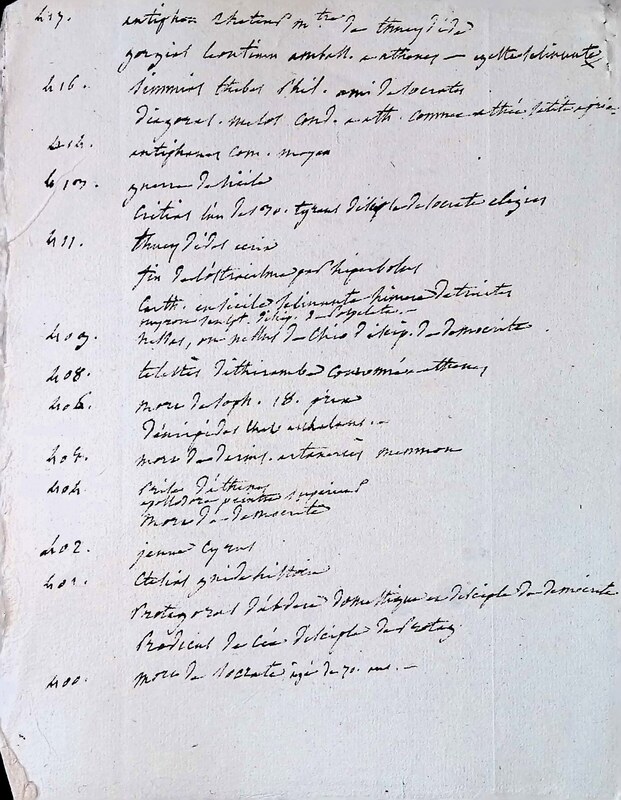 417. antiphon Rheteur m.tre de thucydide
gorgias leontium ambass. a athenes —
416. Simmias thebes Phil. ami de Socrate
diagoras. melos cond. a ath. comme athée
414. antiphanes com. moyen
413. guerre de Sicile
Critias l'un des 30. tyrans disciple de Socrate elegies
411. thucydides ecrit
fin de l'ostracisme par hiperbolus
Carth. en Sicile Selinunte himere detruites
myron sculpt. discip. de Polyclete. —
409. nessas, ou nessus de Chio discip. de democrite
408. telestès dithirambe couronné a athenes
406. mort de Soph. 18. prix
d'euripides chez archelaus. —
404. mort de darius. artaxercès mnemon
404 Prise d'athenes
apollodore peintre
Mort de democrite
402. jeune Cyrus
401. Ctesias gnide histoire
Protagoras d'abdere domestique et disciple de democrite
Prodicus de Cée disciple de Protag.
400. mort de Socrate agé de 70. ans. —